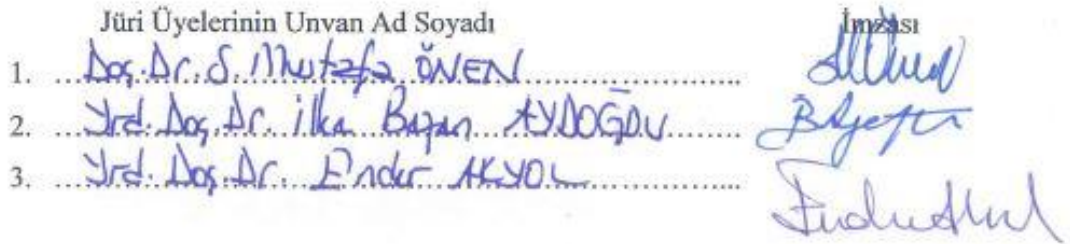 Jüri Üyelerinin Unvan Ad Soyadı İmzası
1. ...Doç. Dr. S. Mustafa ÖNEN...
2. ...Yrd. Doç. Dr. İlka Bayan AYDOĞDU...
3. ...Yrd. Doç. Dr. Ender AKYOL...